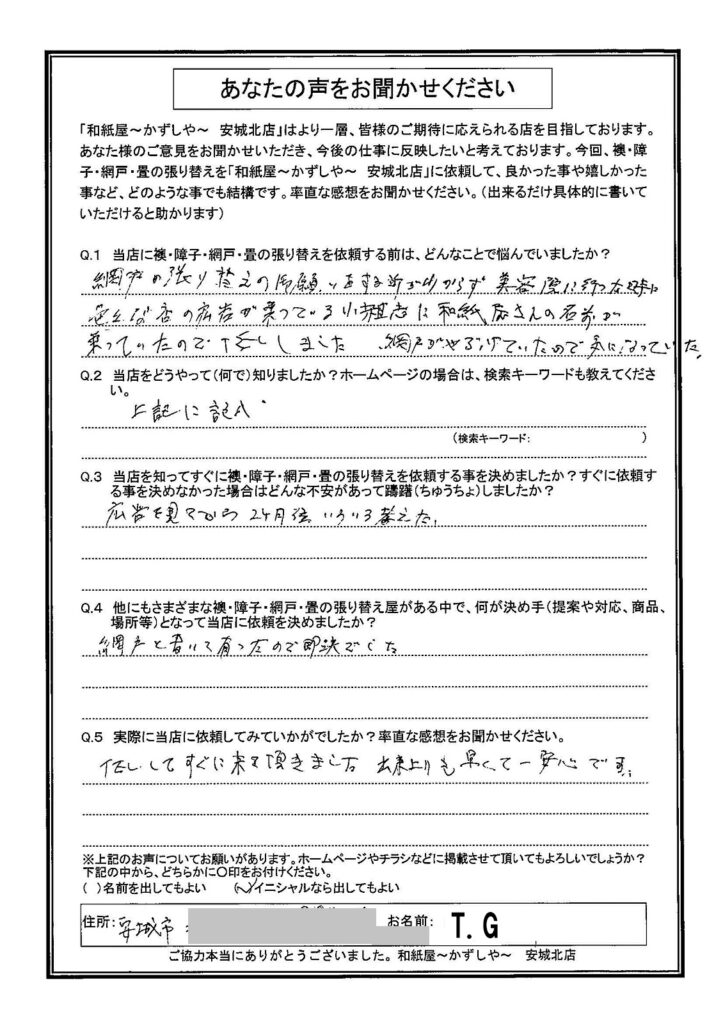 あなたの声をお聞かせください
「和紙屋～かずしや～　安城北店」はより一層、皆様のご期待に応えられる店を目指しております。
あなた様のご意見をお聞かせいただき、今後の仕事に反映したいと考えております。今回、襖・障
子・網戸・畳の張り替えを「和紙屋～かずしや～　安城北店」に依頼して、良かった事や嬉しかった
事など、どのような事でも結構です。率直な感想をお聞かせください。（出来るだけ具体的に書いて
いただけると助かります）
Q.1　当店に襖・障子・網戸・畳の張り替えを依頼する前は、どんなことで悩んでいましたか？
網戸の張り替えのお願いをする所が分からず 美容院に行った時に
店の広告が乗っている小雑誌に和紙屋さんの名前が
乗っていたので しました 網戸がやぶけていたので気になっていた
Q.2　当店をどうやって(何で)知りましたか？ホームページの場合は、検索キーワードも教えてくださ
い。
上記に記入
（検索キーワード：　　　　　　　　）
Q.3　当店を知ってすぐに襖・障子・網戸・畳の張り替えを依頼する事を決めましたか？すぐに依頼す
る事を決めなかった場合はどんな不安があって躊躇(ちゅうちょ)しましたか？
広告を見てから 2ヶ月強 いろいろ考えた。
Q.4　他にもさまざまな襖・障子・網戸・畳の張り替え屋がある中で、何が決め手(提案や対応、商品、
場所等)となって当店に依頼を決めましたか？
網戸と書いて有ったので即決でした
Q.5　実際に当店に依頼してみていかがでしたか？率直な感想をお聞かせください。
してすぐに来て頂きました 出来上りも早くて一安心です。
※上記のお声についてお願いがあります。ホームページやチラシなどに掲載させて頂いてもよろしいでしょうか？
下記の中から、どちらかに〇印をお付けください。
(　)名前を出してもよい　　(✓)イニシャルなら出してもよい
住所：安城市　お名前：T.G
ご協力本当にありがとうございました。和紙屋～かずしや～　安城北店